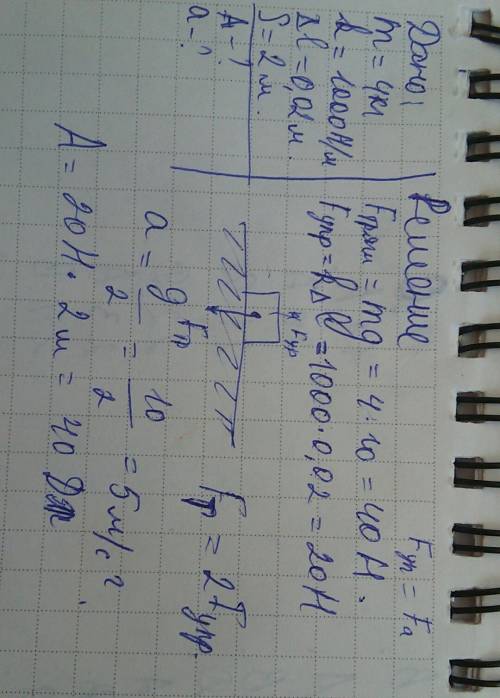 Дано:
m = 4кг
k = 1000 Н/м
Δl = 0,02 м.
S = 2 м.
A - ?
a - ?
Решение
Fтяж = mg = 4·10 = 40 Н.
Fупр = kΔl = 1000·0,02 = 20Н
Fуп = Fа
Fур
Fт
Fт = 2Fупр.
a = g/2 = 10/2 = 5 м/с²
A = 20Н · 2м = 40 Дж